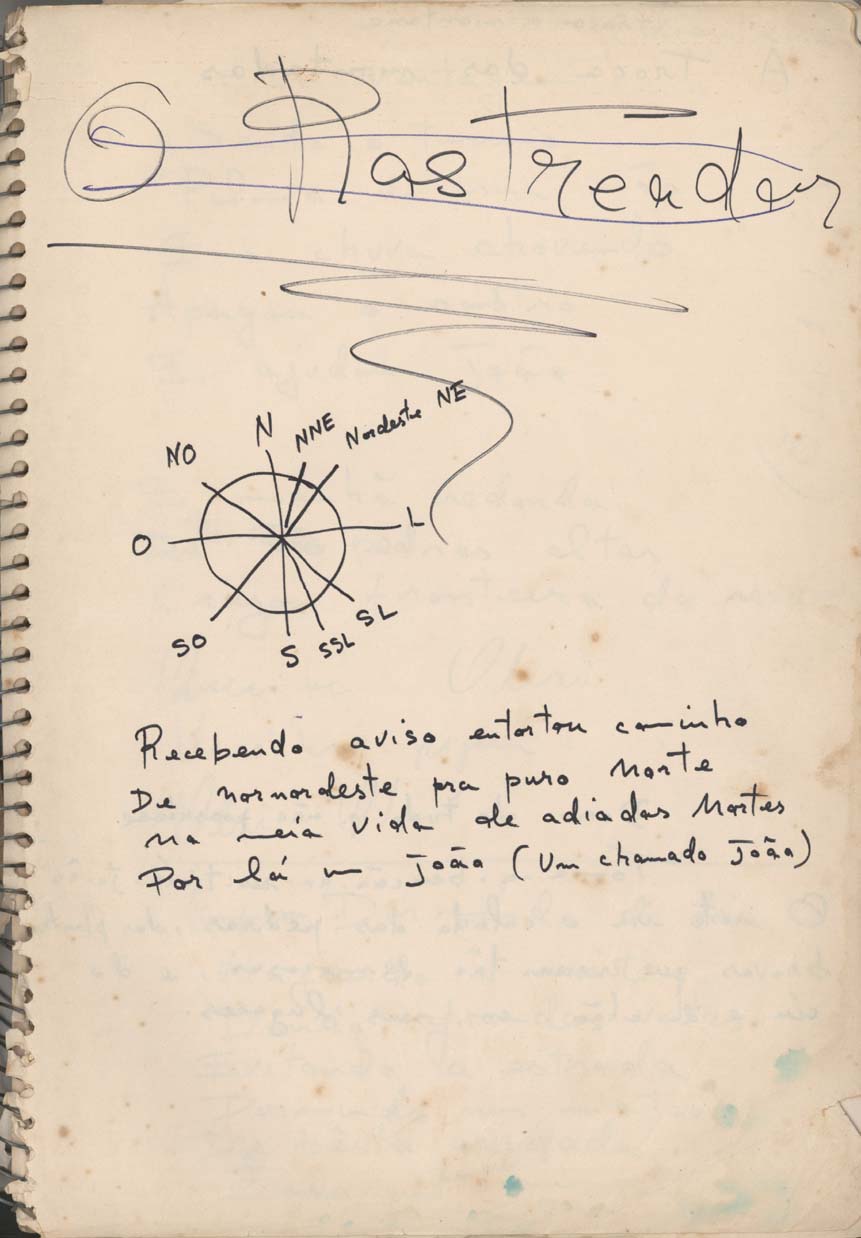 O Rastreador
N
NO
NNE
Nordeste NE
O
L
SO
S
SSL
SL
Recebendo aviso entortou caminho
De nornordeste pra puro Norte
na meia vida de adiadas Mortes
Por lá um João (Um chamado João)